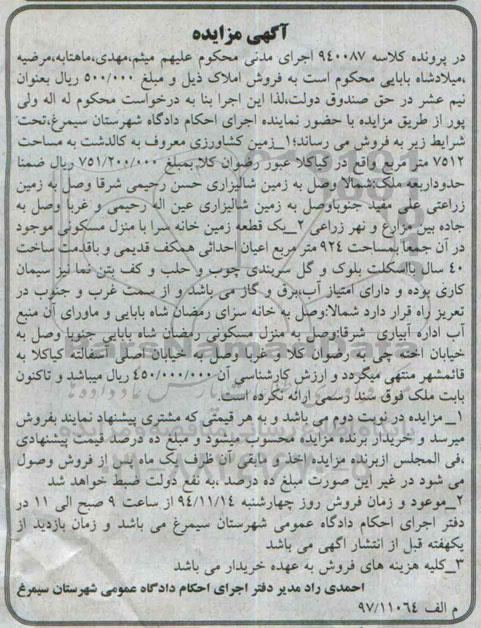 آگهی مزایده
در پرونده کلاسه ۹۴۰۰۸۷ اجرای مدنی محکوم علیهم میثم،مهدی،ماهتابه،مرضیه
،میلادشاه بابایی محکوم است به فروش املاک ذیل و مبلغ ۵۰۰/۰۰۰ ریال بعنوان
نیم عشر در حق صندوق دولت،لذا این اجرا بنا به درخواست محکوم له اله ولی
پور از طریق مزایده با حضور نماینده اجرای احکام دادگاه شهرستان سیمرغ،تحت
شرایط زیر به فروش می رساند:۱_زمین کشاورزی معروف به کالدشت به مساحت
۷۵۱۲ متر مربع واقع در کیاکلا عبور رضوان کلا بمبلغ ۷۵۱/۲۰۰/۰۰۰ ریال ضمنا
حدوداربعه ملک:شمالا وصل به زمین شالیزاری حسن رحیمی شرقا وصل به زمین
زراعتی علی مفید جنوباوصل به زمین شالیزاری عین اله رحیمی و غربا وصل به
جاده بین مزارع و نهر زراعی ۲_یک قطعه زمین خانه سرا با منزل مسکونی موجود
در آن جمعا بمساحت ۹۲۴ متر مربع اعیان احداثی همکف قدیمی و باقدمت ساخت
۴۰ سال بااسکلت بلوک و گل سربندی چوب و حلب و کف بتن نما نیز سیمان
کاری بوده و دارای امتیاز آب،برق و گاز می باشد و از سمت غرب و جنوب در
تعریز راه قرار دارد شمالا:وصل به خانه سرای رمضان شاه بابایی و ماورای آن منبع
آب اداره آبیاری شرقا:وصل به منزل مسکونی رمضان شاه بابایی جنوبا وصل به
خیابان اخته چی به رضوان کلا و غربا وصل به خیابان اصلی اسفالته کیاکلا به
قائمشهر منتهی میگردد و ارزش کارشناسی آن ۴۵۰/۰۰۰/۰۰۰ ریال میباشد و تاکنون
بابت ملک فوق سند رسمی ارائه نکرده است.
۱_ مزایده در نوبت دوم می باشد و به هر قیمتی که مشتری پیشنهاد نمایند بفروش
میرسد و خریدار برنده مزایده محسوب میشود و مبلغ ده درصد قیمت پیشنهادی
،فی المجلس ازبرنده مزایده اخذ و مابقی آن ظرف یک ماه پس از فروش وصول
می شود در غیر این صورت مبلغ ده درصد ،به نفع دولت ضبط خواهد شد
۲_موعود و زمان فروش روز چهارشنبه ۹۴/۱۱/۱۴ از ساعت ۹ صبح الی ۱۱ در
دفتر اجرای احکام دادگاه عمومی شهرستان سیمرغ می باشد و زمان بازدید از
یکهفته قبل از انتشار اگهی می باشد
۳_کلیه هزینه های فروش به عهده خریدار می باشد
احمدی راد مدیر دفتر اجرای احکام دادگاه عمومی شهرستان سیمرغ
م الف ۹۷/۱۱۰۶۴